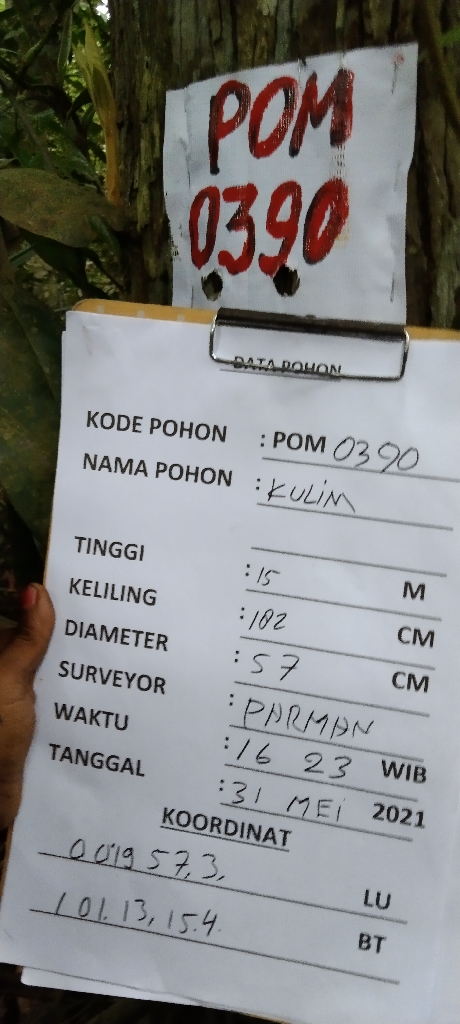 POM
0390
DATA POHON
KODE POHON : POM 0390
NAMA POHON : KULIM
TINGGI : 15 M
KELILING : 182 CM
DIAMETER : 57 CM
SURVEYOR : PARMAN
WAKTU : 16 23 WIB
TANGGAL : 31 MEI 2021
KOORDINAT
0 0'19 57,3, LU
101.13,15.4. BT